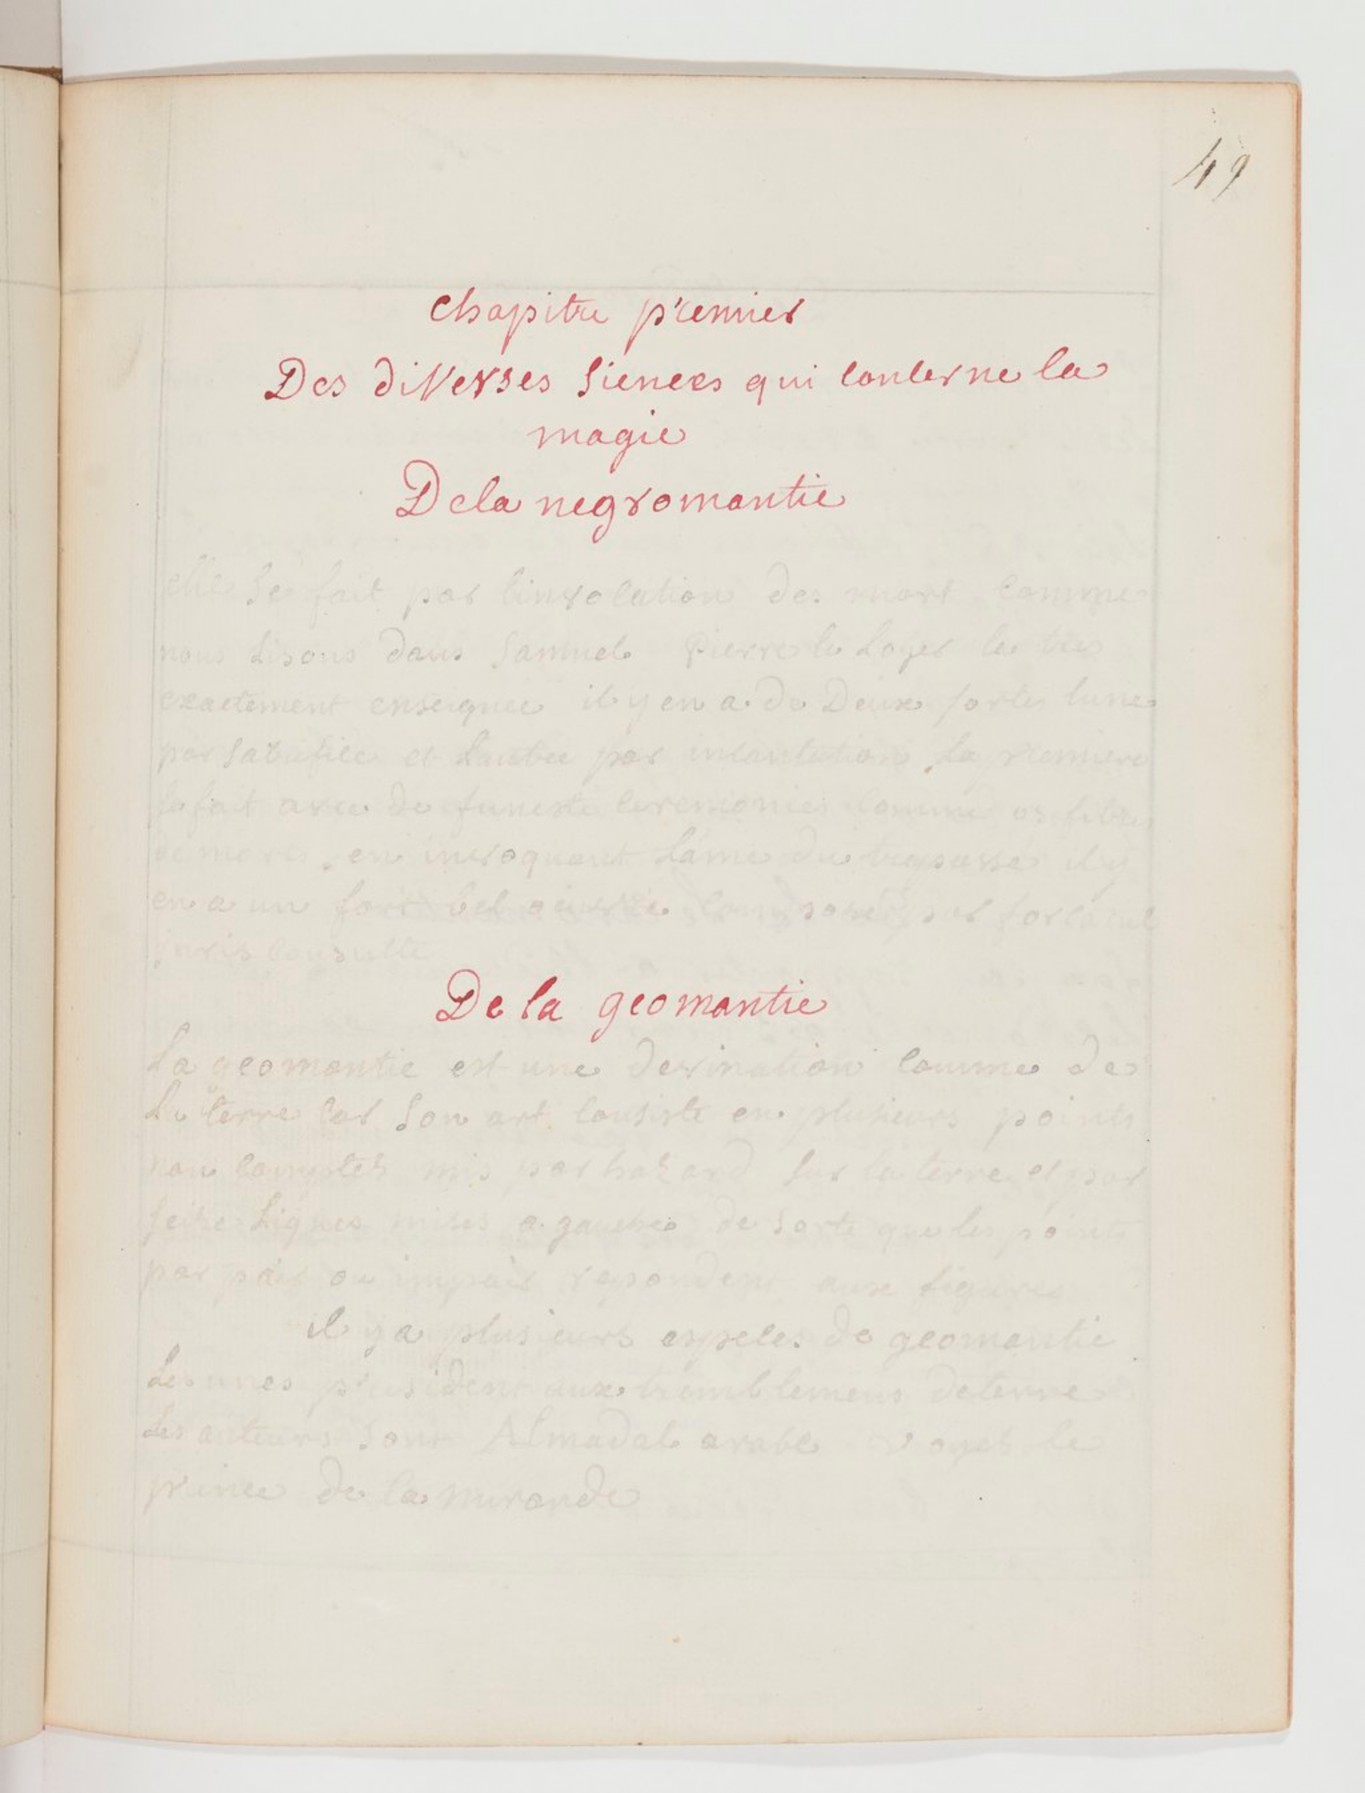 49
chapitre premier
Des diverses siences qui conserne la
magie
De la negromantie
elle se fait par linvocation des mort comme
nous lisons dans samuel Pierre le Loyer la tres
exactement enseignee il y en a de Deux sortes lune
par sacrifice et lautre par incantation La premiere
se fait avec de funeste ceremonies comme os fibres
de morts en invoquant lame du trepassé il y
en a un fort bel composé par
juris consulte
De la geomantie
La geomantie est une devination comme de
la terre car son art consiste en plusieurs points
non comptés mis par hazard sur la terre et par
seize lignes mises a gauche de sorte que les points
par pair ou impair repondent aux figures
il y a plusieurs especes de geomantie
Les unes president aux tremblemens de terre
Les auteurs sont Almadal arabe voyes le
prince de la mirande